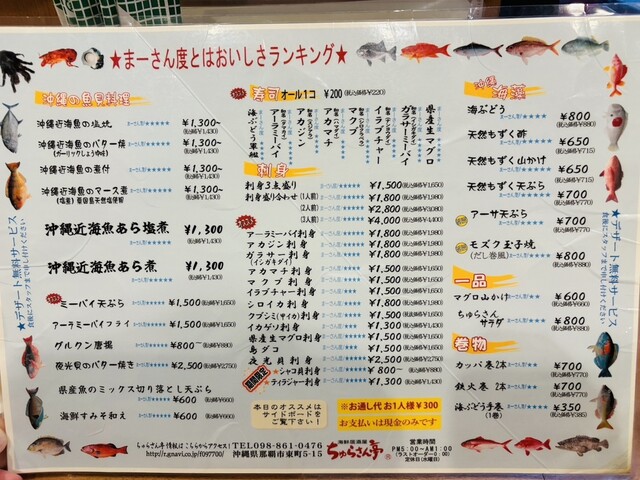 ★まーさん度とはおいしさランキング★
沖縄の魚貝料理
沖縄近海魚の塩焼
¥1,300~
(税込価格¥1,430)
沖縄近海魚のバター焼
(ガーリックしょうゆ味)
¥1,300~
(税込価格¥1,430)
沖縄近海魚の煮付
¥1,300~
(税込価格¥1,430)
沖縄近海魚のマース煮
(塩煮)粟国島天然塩使用
¥1,300~
(税込価格¥1,430)
沖縄近海魚あら塩煮
¥1,300
(税込価格¥1,430)
沖縄近海魚あら煮
¥1,300
(税込価格¥1,430)
ミーバイ天ぷら
¥1,500
(税込価格¥1,650)
アーラミーバイフライ
¥1,500
(税込価格¥1,650)
グルクン唐揚
¥800~
(税込価格¥880)
夜光貝のバター焼き
¥2,500
(税込価格¥2,750)
県産魚のミックス切り落とし天ぷら
¥600
(税込価格¥660)
海鮮すみそ和え
¥600
(税込価格¥660)
寿司 オール1コ ¥200 (税込価格¥220)
県産生マグロ
イラブチャー
アカマチ
アカジン
アーラミーバイ
海ぶどう軍艦
刺身
刺身3点盛り ¥1,500 (税込価格¥1,650)
刺身盛り合わせ(1人前) ¥2,000 (税込価格¥2,200)
(2人前) ¥3,000 (税込価格¥3,300)
(3人前) ¥4,000 (税込価格¥4,400)
アーラミーバイ刺身
アカジン刺身
ガラサー刺身
(イシガキダイ)
アカマチ刺身
マクブ刺身
イラブチャー刺身
シロイカ刺身
クブシミ(サイカ)刺身
イカゲソ刺身
県産生マグロ刺身
島ダコ
夜光貝刺身
期間限定
★シャコ貝刺身
¥800~
★ティラジャー刺身
本日のオススメは
サイドボードを
ご覧下さい!
※お通し代お1人様¥300
お支払いは現金のみです
沖縄
海藻
海ぶどう
¥800
(税込価格¥880)
天然もずく酢
¥650
(税込価格¥715)
天然もずく山かけ
¥650
(税込価格¥715)
天然もずく天ぷら
¥700
(税込価格¥770)
アーサ天ぷら
¥700
(税込価格¥770)
モズク玉子焼
(だし巻風)
¥800
(税込価格¥880)
一品
マグロ山かけ
¥600
(税込価格¥660)
ちゅらさん
サラダ
¥800
(税込価格¥880)
巻物
カッパ巻2本
¥700
(税込価格¥770)
鉄火巻 2本
¥700
(税込価格¥770)
海ぶどう手巻
(1巻)
¥350
(税込価格¥385)
★デザート無料サービス
食後にスタッフまで申し付けください
★デザート無料サービス★
食後にスタッフまで申し付けください
ちゅらさん亭情報はこちらからアクセス!
http://r.gnavi.co.jp/f097700/
TEL098-861-0476
沖縄県那覇市東町5-15
海鮮居酒屋
ちゅらさん亭
営業時間
PM5:00~AM1:00
(ラストオーダー0:00)
定休日(水曜日)